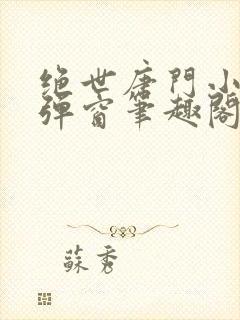 绝世唐門小
弹窗筆趣閣
蘇秀